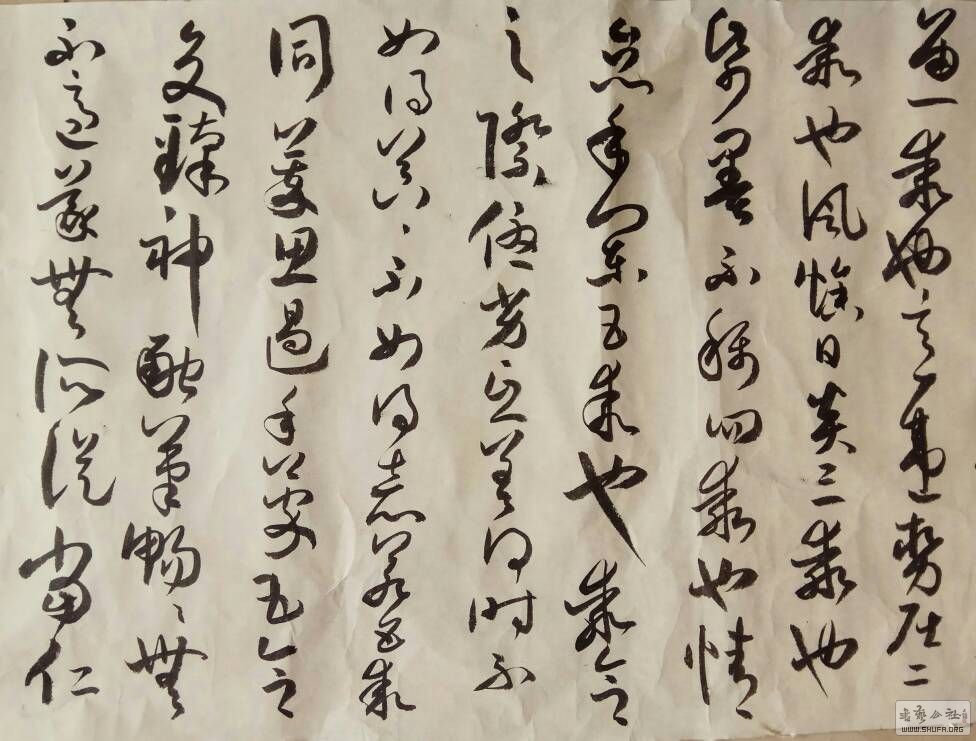 留一乖也意違勢屈二
乖也風燥日炎三乖也
紙墨不稱四乖也情
怠手闌五乖也乖合
之際優劣互差得時不
如得器、不如得志若五乖
同萃思遏手蒙五合
交臻神融筆暢、無
不適蒙無所從當仁
書藝公社
WWW.SHUFA.ORG